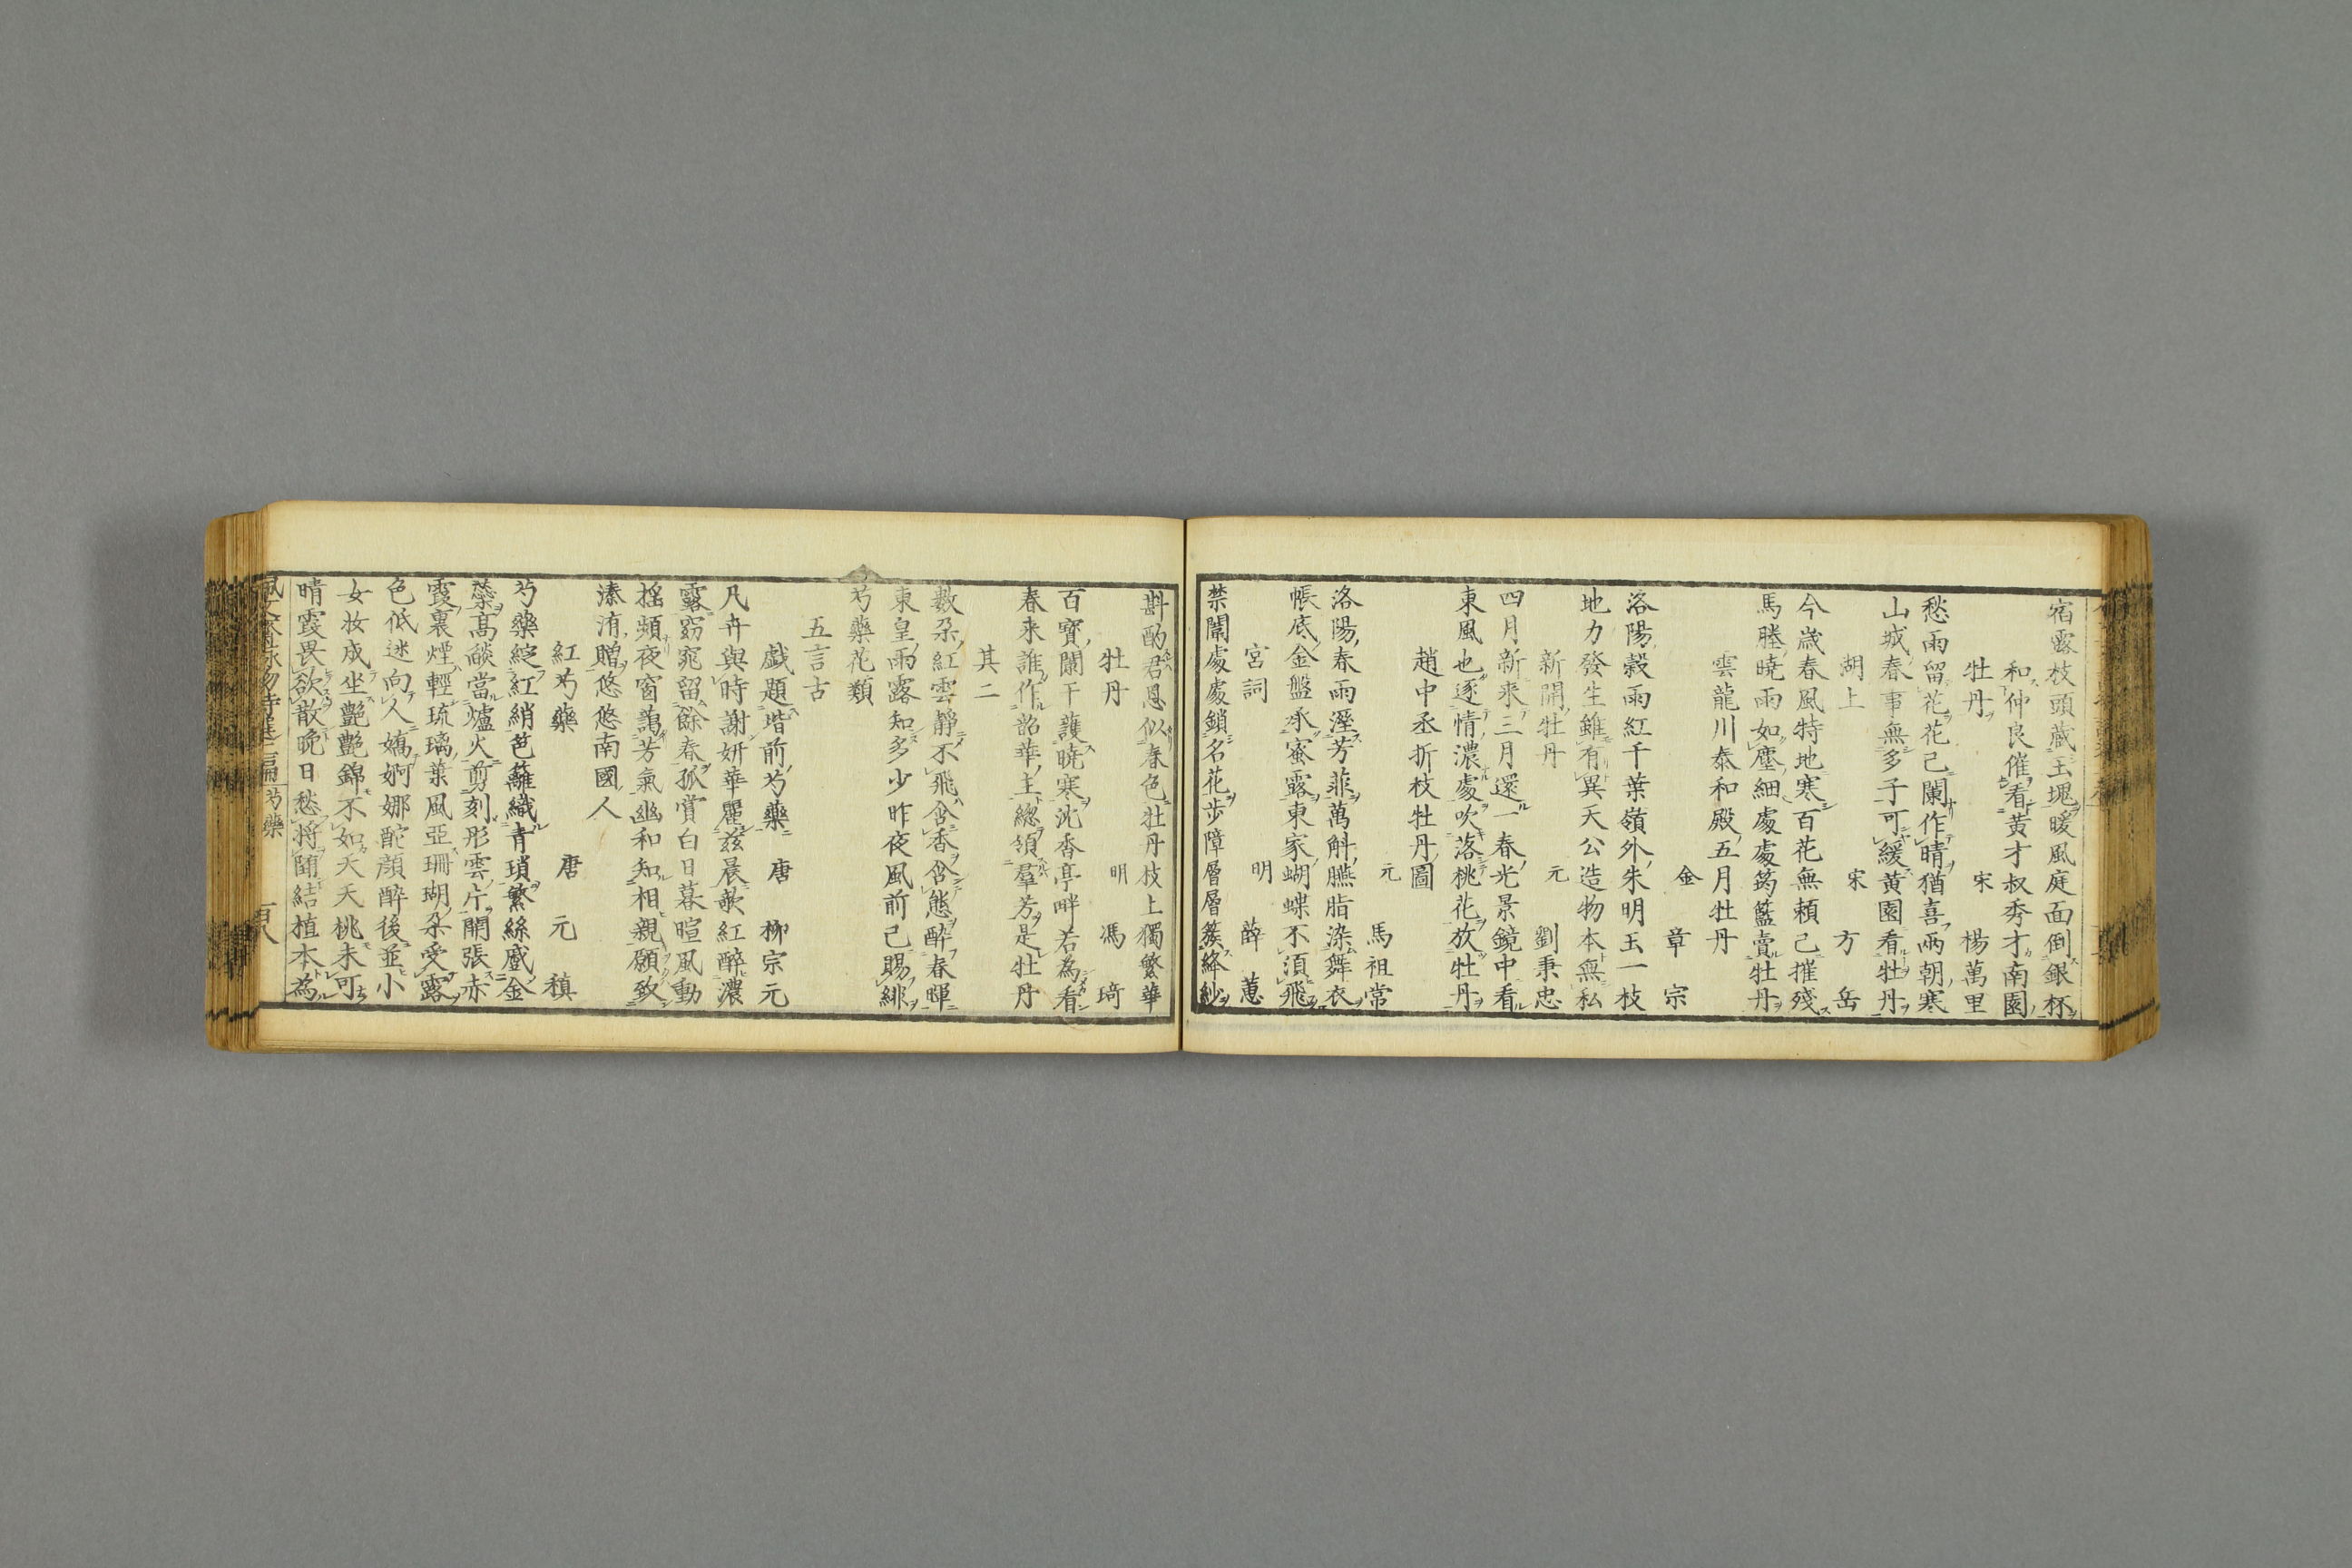 宿露枝頭藏玉塊暖風庭面倒銀杯
和仲良催看黃才叔秀才南園
牡丹　宋　楊萬里
愁雨留花花已闌作晴猶喜兩朝寒
山城春事無多子可緩黃園看牡丹
胡上　宋　方岳
今歲春風特地寒百花無賴已摧殘
馬塍曉雨如塵細處處筠籃賣牡丹
雲龍川泰和殿五月牡丹
金　章宗
洛陽穀雨紅千葉嶺外朱明玉一枝
地力發生雖有異天公造物本無私
新開牡丹　元　劉秉忠
四月新來三月還一春光景鏡中看
東風也逐情濃處吹落桃花放牡丹
趙中丞折枝牡丹圖
元　馬祖常
洛陽春雨溼芳菲萬斛臙脂染舞衣
帳底金盤承蜜露東家蝴蝶不須飛
宮詞　明　薛蕙
禁闈處處鎖名花步障層層簇絳紗
斟酌君恩似春色牡丹枝上獨繁華
牡丹　明　馮琦
百寶闌干護曉寒沈香亭畔若為看
春來誰作韶華主總領羣芳是牡丹
其二
數朶紅雲靜不飛含香含態醉春暉
東皇雨露知多少昨夜風前已賜緋
芍藥花類
五言古
戲題堦前芍藥　唐　柳宗元
凡卉與時謝妍華麗茲晨欹紅醉濃
露窈窕留餘春孤賞白日暮暄風動
搖頻夜窗藹芳氣幽和知相親願致
溱洧贈悠悠南國人
紅芍藥　唐　元稹
芍藥綻紅綃芭籬織青瑣繁絲蹙金
蘂高燄當爐火剪刻彤雲片開張赤
霞裏煙輕琉璃葉風亞珊瑚朶受露
色低迷向人嬌婀娜酡顏醉後並小
女妝成坐豔豔錦不如夭夭桃未可
晴霞畏欲散晚日愁將墮結植本為
詠物詩選三編　芍藥　百八